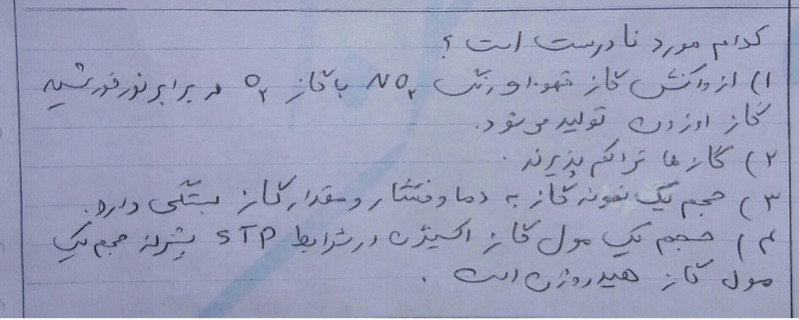 کدام مورد نادرست است؟
۱) از واکنش گاز قهوه‌ای رنگ NO₂ با گاز O₂ در برابر نور خورشید
گاز اوزون تولید می‌شود.
۲) گازها تراکم پذیرند.
۳) حجم یک نمونه گاز به دما و فشار و مقدار گاز بستگی دارد.
۴) حجم یک مول گاز اکسیژن در شرایط STP بیشتر از حجم یک
مول گاز هیدروژن است.